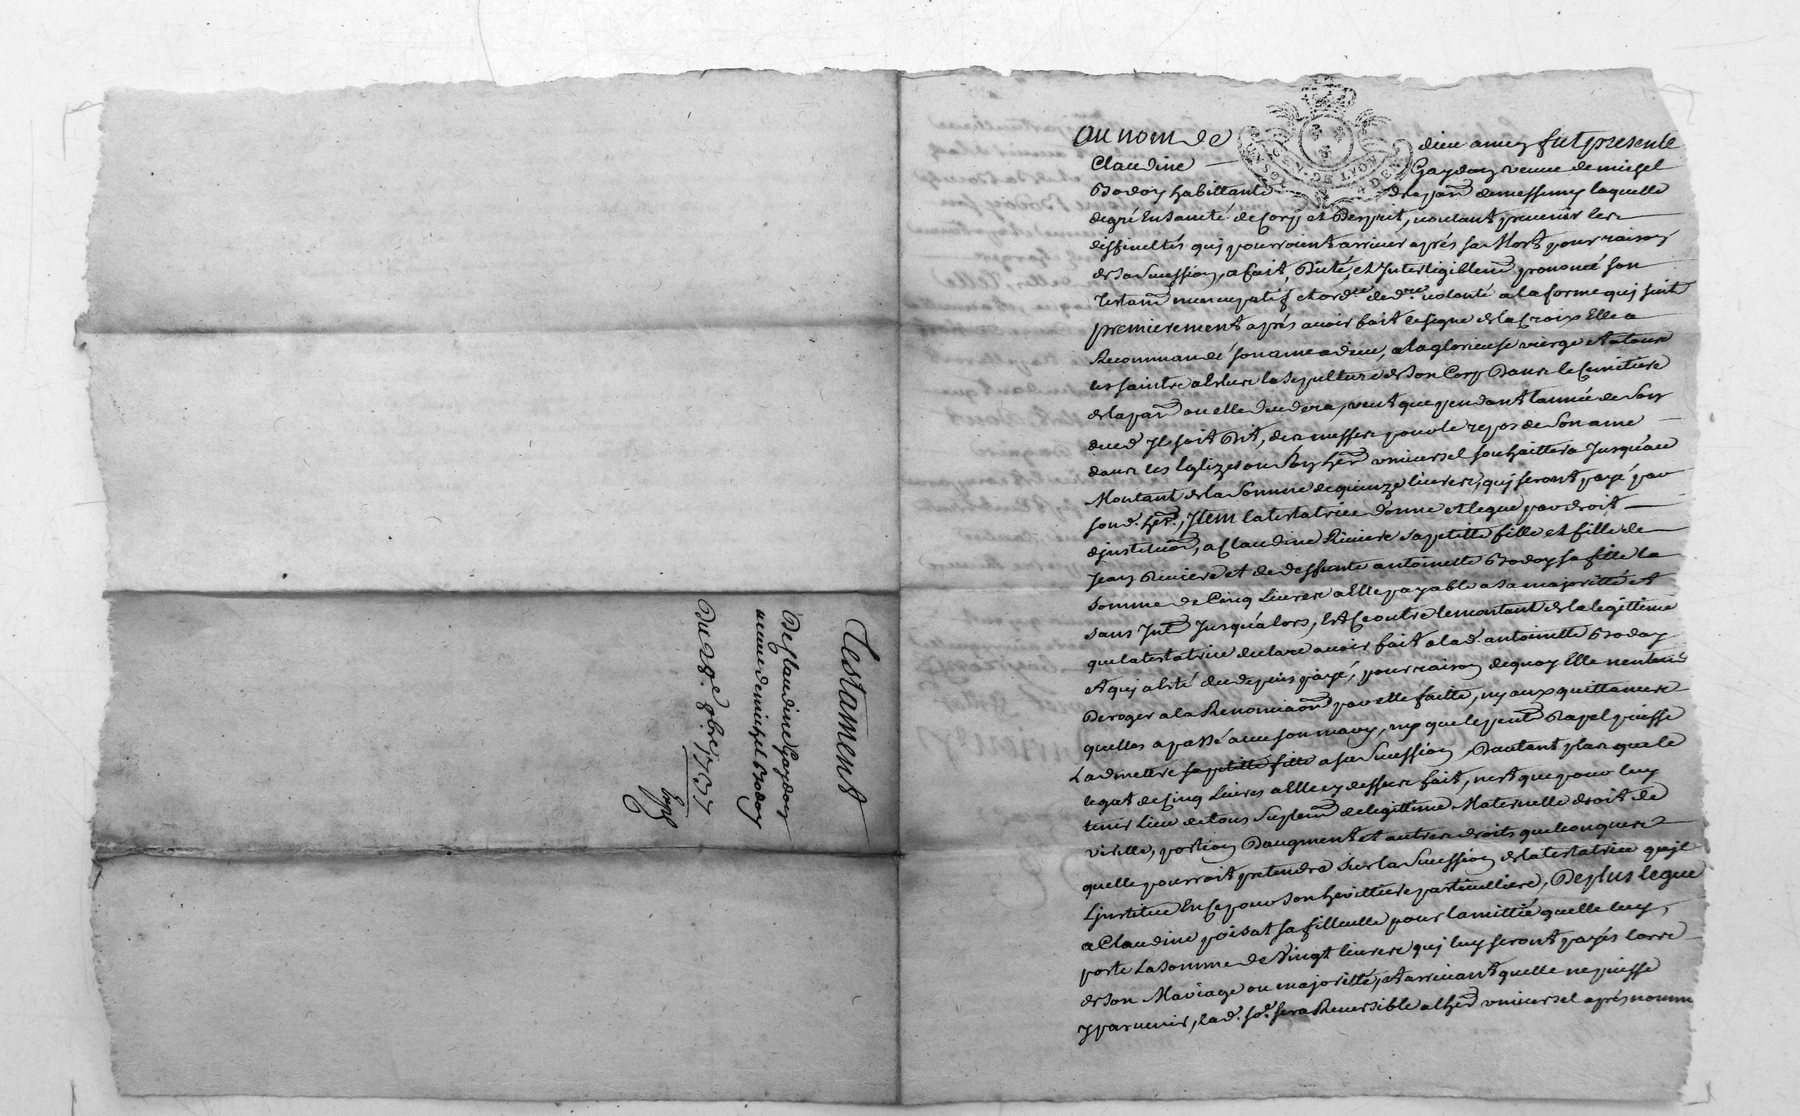 Testament
De Claudine Gaydon
veuve de michel Bodoy
Du 28.e 9bre 1737
Au nom de dieu amen fut presente
GEN. DE LYON
Claudine Gaydon veuve de michel
Bodoy habittante de la parr. de messimy laquelle
de gré En Santé de Corp et D'esprit, voulant prevenir les
difficultés quj pourroient arriver aprés sa Mort pour raison
de sa Sucession, a fait, Dicté, et Interligiblem.t prononcé son
Testam.t nuncupatif et ord.re de d.re volonté a la forme quj suit
premierement aprés avoir fait le signe de la Croix Elle a
Recommandé son ame a dieu, a la glorieuse vierge et a tous
les saints a Esleu la Sepulture de Son Corp Dans le Cemitiere
de la parr. ou elle Decedera, veut que pendant l'année de Son
deced Jl soit Dit, des messes pour le repos de Son ame
dans les Eglizes ou Son her. universel souhaittera Jusqu'au
Montant de la Somme de quinze livres, quj seront payé par
son d. her., Jtem la testatrice donne et legue par droit
d'jnstituon, a Claudine Riviere sa petitte fille et fille de
Jean Riviere et de deffunte antoinette Bodoy sa fille la
somme de Cinq Livres a Elle payable a sa majoritté et
sans Int. Jusqu'alors, Et Ce outre le montant de la legittime
que la testatrice declare avoir fait a la d. antoinette Bodoy
et quj a Esté du depuis payé, pour raison de quoy Elle n'entend
Deroger a la Renonciaon par elle faitte, ny aux quittances
quelles a passé avec son mary, ny que le pent. Rapel puisse
L'admettre sa petitte fille a sa Sucession, D'autant plus que le
legat de Cinq Livres a Elle cy dessus fait, n'est que pour luy
tenir Lieu de tous Suplem. de legittime Maternelle droit de
virille, portion D'augment et autres droits quelconques
quelle pourroit pretendre sur la Sucession de la testatrice quj
L'jnstitue En Ce pour son herittiere particulliere, De plus legue
a Claudine poisat sa filleulle pour l'amittié quelle luy
porte La Somme de Vingt livres quj luy seront payés lors
de son Mariage ou majoritté, et arrivant quelle ne puisse
y parvenir, la d. so.e sera Reversible a l'her. universel aprés nommé